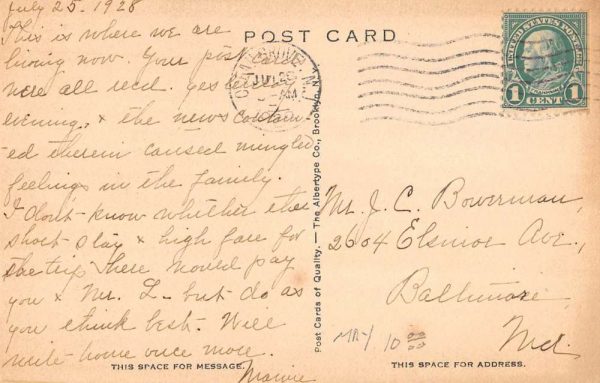 July 25, 1928
POST CARD
This is where we are
living now. Your post cards
were all recd. yesterday
evening, & the news contain-
ed therein caused mingled
feelings in the family.
I don't know whether the
short stay & high fare for
the trip here would pay
you & Mr. L. but do as
you think best. Will
write home once more.
THIS SPACE FOR MESSAGE.
Post Cards of Quality. — The Albertype Co., Brooklyn, N.Y.
UNITED STATES POSTAGE
1 CENT 1
JUL 26
AM
Mr. J. C. Bowerman,
2604 Elsinor Ave.,
Baltimore
Md.
10 00
THIS SPACE FOR ADDRESS.